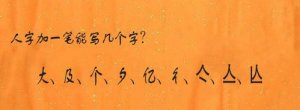 人字加一笔能写几个字?
大、及、个、夕、亿、彳、亽、亼、亾